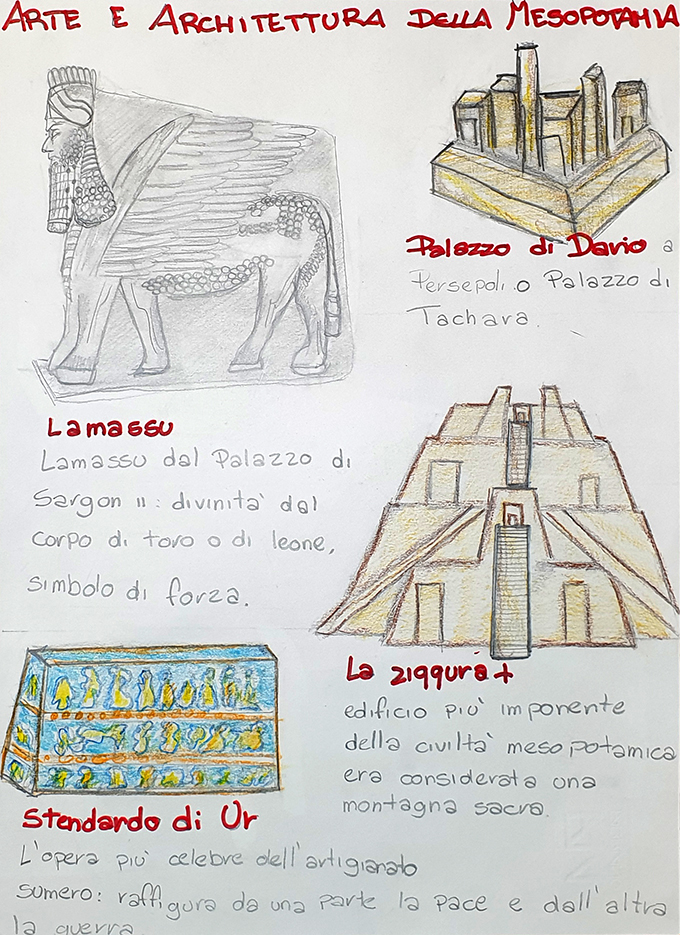 ARTE E ARCHITETTURA DELLA MESOPOTAMIA
Palazzo di Dario a
Persepoli o Palazzo di
Tachara.
Lamassu
Lamassu dal Palazzo di
Sargon II: divinità dal
corpo di toro o di leone,
simbolo di forza.
La ziqqurat
edificio più imponente
della civiltà mesopotamica
era considerata una
montagna sacra.
Stendardo di Ur
L'opera più celebre dell'artigianato
sumero: raffigura da una parte la pace e dall'altra
la guerra